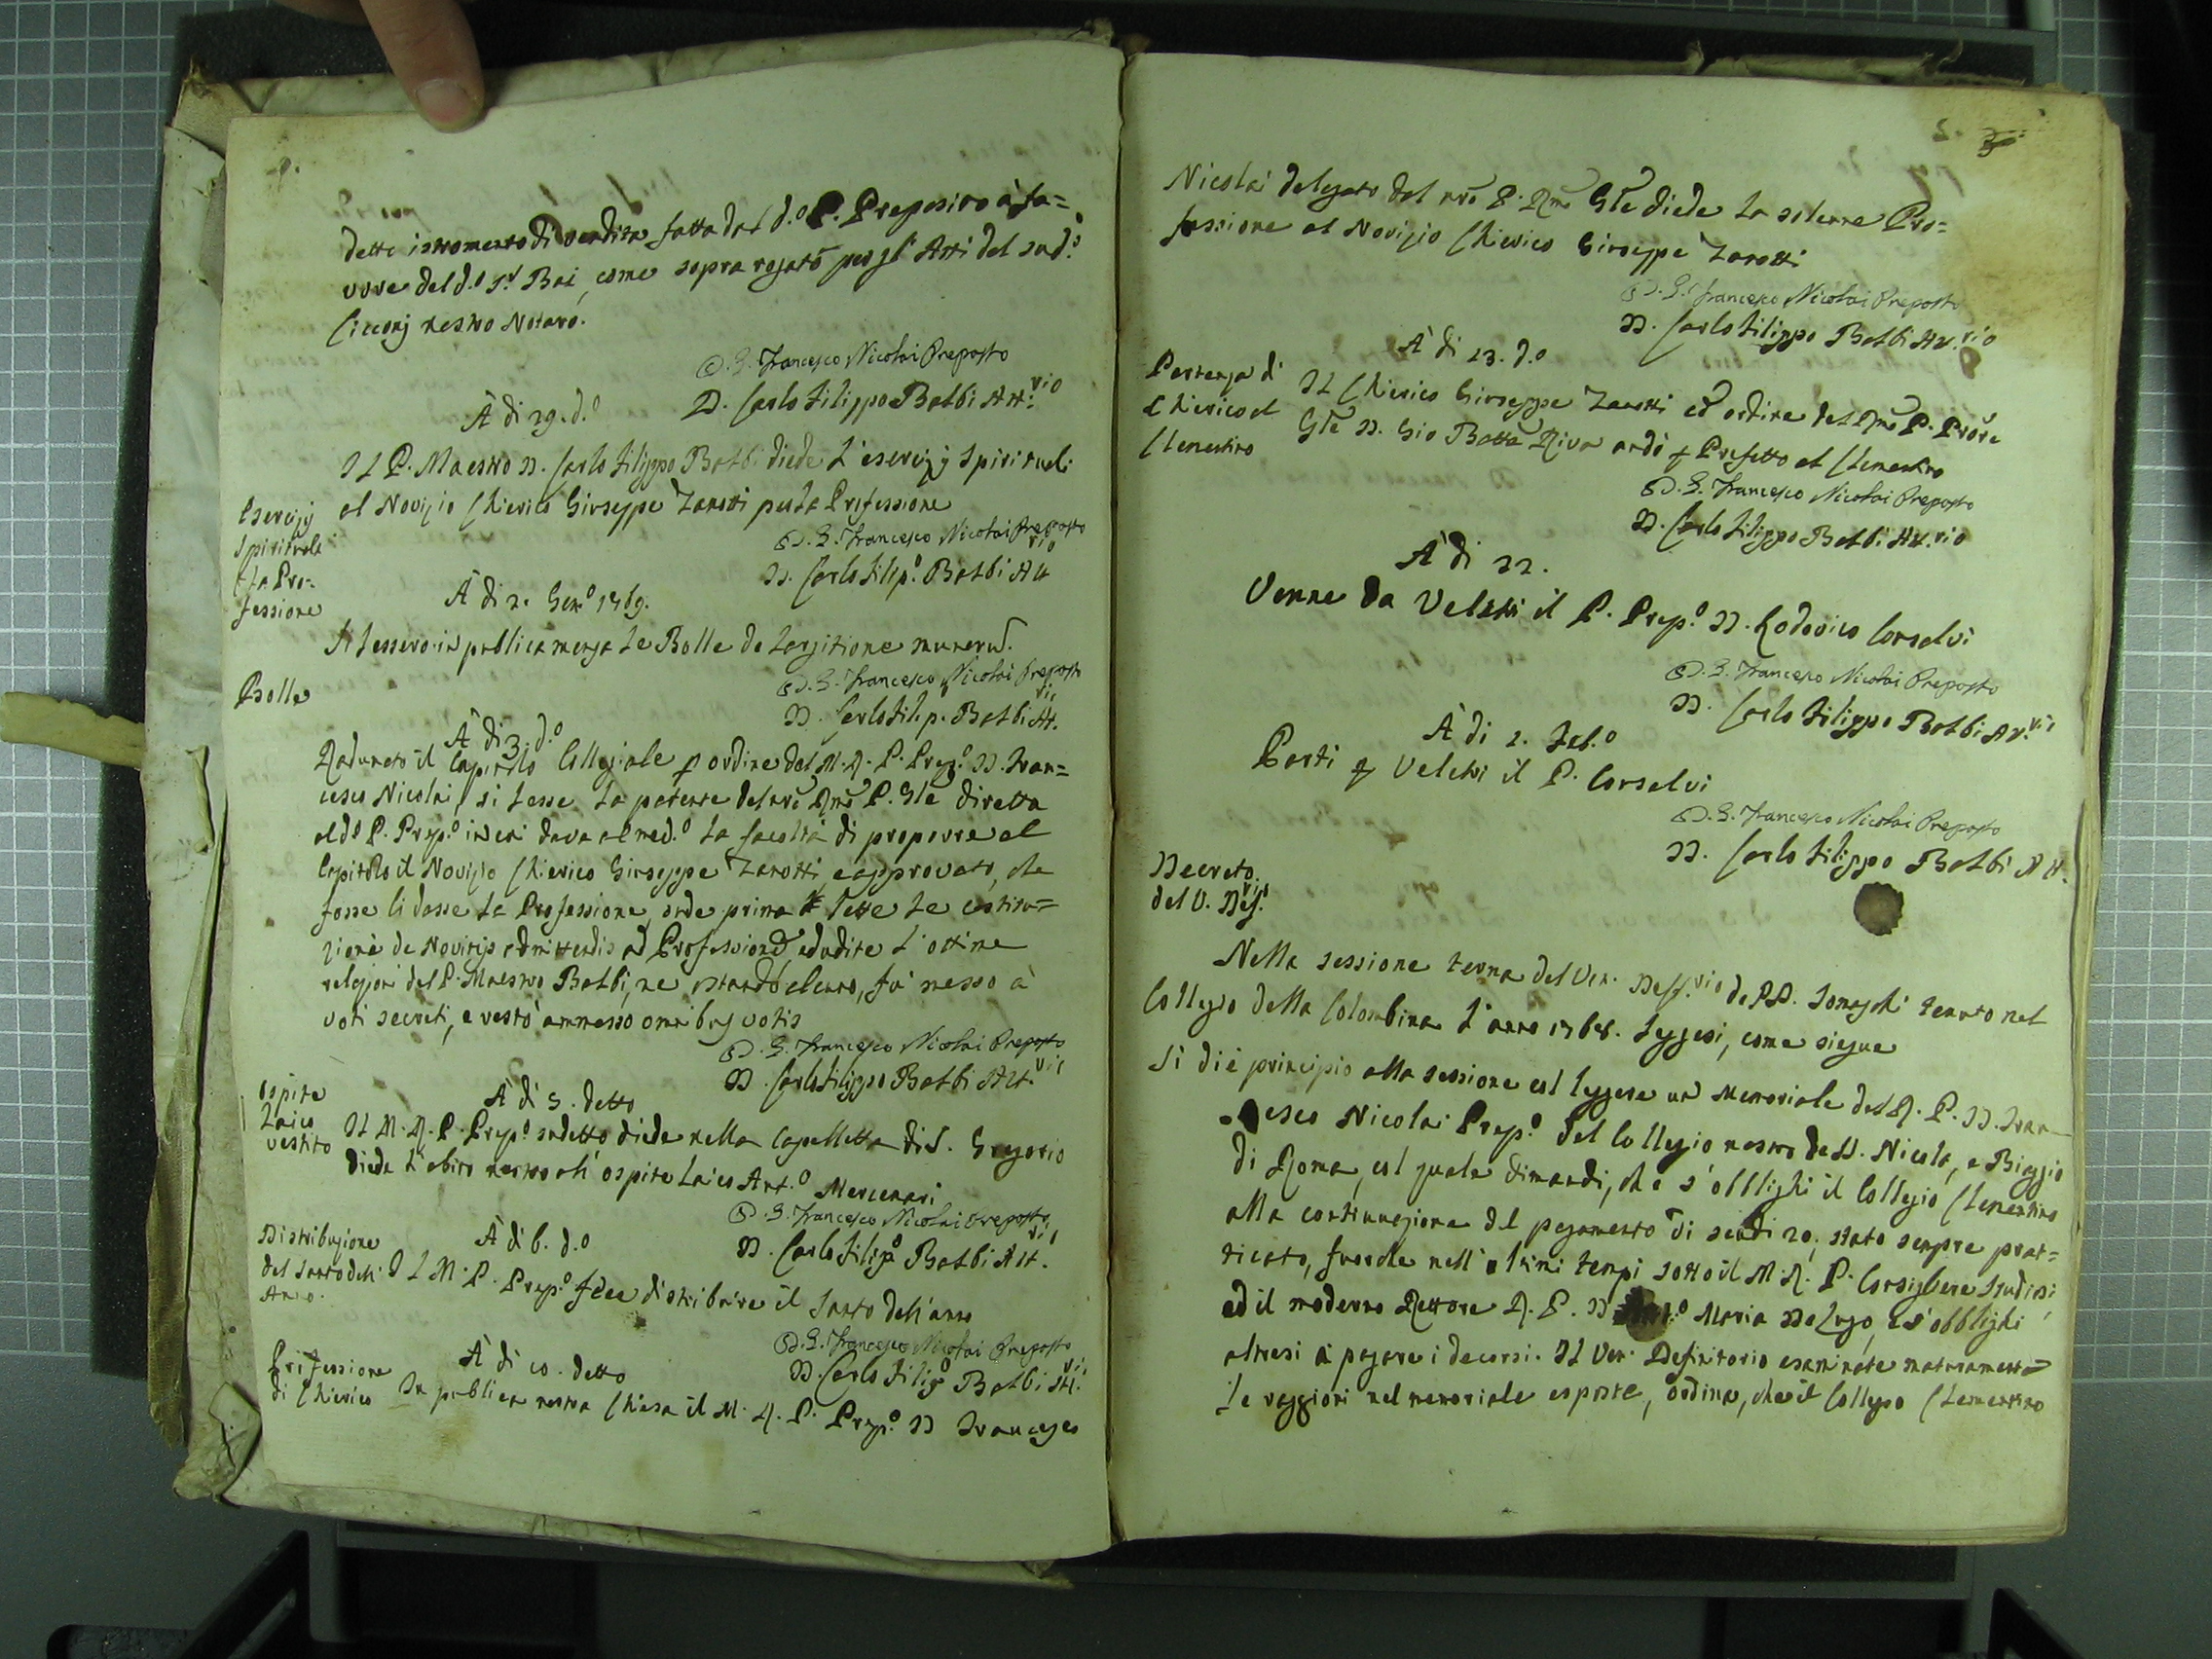 4.
dette istromento di vendita fatta dal d.o P. Preposito à fa=
vore del d.o S.r Bai, come sopra rogato per gl' Atti del sud.o
nostro Notaro.
D. G. Francesco Nicolai Preposto
D. Carlo Filippo Balbi Att.rio
À di 29. d.o
Esercizj
Spirituali
la Pro=
fessione
Il P. Maestro D. Carlo Filippo Balbi diede l'esercizj Spirituali
al Novizio Chierico Giuseppe Zanotti per la Professione
D. G. Francesco Nicolai Preposto
D. Carlo Filip.o Balbi Att.rio
À di 2. Gen.o 1769.
Bolle
Si lessero in publica mensa le Bolle de largitione munerum.
D. G. Francesco Nicolai Preposto
D. Carlo Filip. Balbi Att.rio
À di 3. d.o
Radunato il Capitolo Collegiale p ordine del M. R. P. Prep.o D. Fran=
cesco Nicolai, si lesse la patente del nrõ Rmõ P. Gle diretta
al d.o P. Prep.o in cui dava al med.o la facoltà di proporre al
Capitolo il Novizio Chierico Giuseppe Zanotti, e approvato, che
fosse li dasse la Professione, onde prima lette le costitu=
zioni de Novitijs admittendis ad Professionẽ, ed udite l'ottime
relazioni del P. Maestro Balbi, ne ostando alcuno, fu messo à
voti secreti, e restò ammesso omnibus votis
D. G. Francesco Nicolai Preposto
D. Carlo Filippo Balbi Att.rio
À di 5. detto
Ospite
Laico
vestito
Il M. R. P. Prep.o sudetto diede nella Capelletta di S. Gregorio
diede l'abito nostro all' ospite Laico Ant.o Mercenari
D. G. Francesco Nicolai Preposto
D. Carlo Filip.o Balbi Att.rio
À di 6. d.o
Distribuzione
del Santo dell'
Anno.
Il M. P. Prep.o fece distribuire il Santo dell'anno
D. G. Francesco Nicolai Preposto
D. Carlo Filip.o Balbi Att.rio
À di 10. detto
Professione
di Chierico
In publica nostra Chiesa il M. R. P. Prep.o D Francesco
5.
Nicolai delegato dal nrõ P. Rmõ Gle diede la solenne Pro=
fessione al Novizio Chierico Giuseppe Zanotti
D. G. Francesco Nicolai Preposto
D. Carlo Filippo Balbi Att.rio
À di 13. d.o
Partenza di
Chierico al
Clementino
Il Chierico Giuseppe Zanotti ed ordine del Rmõ P. Prõre
Gle D. Gio Batta Riva andò p Prefetto al Clementino
D. G. Francesco Nicolai Preposto
D. Carlo Filippo Balbi Att.rio
À di 22.
Venne da Velletri il P. Prep.o D. Lodovico Corselvi
D. G. Francesco Nicolai Preposto
D. Carlo Filippo Balbi Att.rio
À di 2. Feb.o
Partì p Velletri il P. Corselvi
D. G. Francesco Nicolai Preposto
D. Carlo Filippo Balbi Att.
Decreto
del V. Def.rio
Nella sessione terza del Ven. Deff.rio de PP. Somaschi tenuto nel
Collegio della Colombina l'anno 1768. leggesi, come siegue
Si diè principio alla sessione col leggere un Memoriale del R. P. D. Fran=
cesco Nicolai Prep.o del Collegio nostro de SS. Nicola, e Biaggio
di Roma, col quale dimandi, che s'obblighi il Collegio Clementino
alla continuazione del pagamento di scudi 20, stato sempre prat=
ticato, fuorche nell' ultimi tempi sotto il M. R. P. Consigliere Studiosi,
ed il moderno Rettore R. P. D Maria De Lugo, e s'obblighi
altresi à pagare i decorsi. Il Ven. Definitorio esaminate maturamente
le raggioni nel memoriale esposte, ordina, che il Collegio Clementino